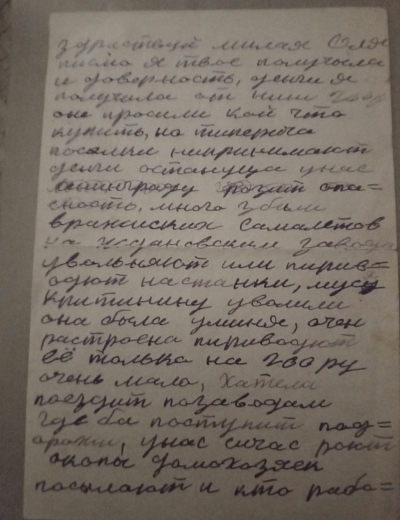 здраствуй милая Оля
писмо я твое получила
и доверность, денги я
получила от нии 200р
оне просили кой что
купить, но типерича
посылки нипринимают
денги останутца унас
ленинграду грозит опа=
сность, много збили
вражиских самалетов
на ждановским заводе
увольняют или пирив=
одют настанки, мусу
кпитинину уволили
она была уминя, очен
растроена пириводют
её толька на 200 ру
очень мало, хатели
поездит позаводам
где ба поступит под=
орожи, унас сичас роют
окопы домохозяек
посылают и кто рабо=